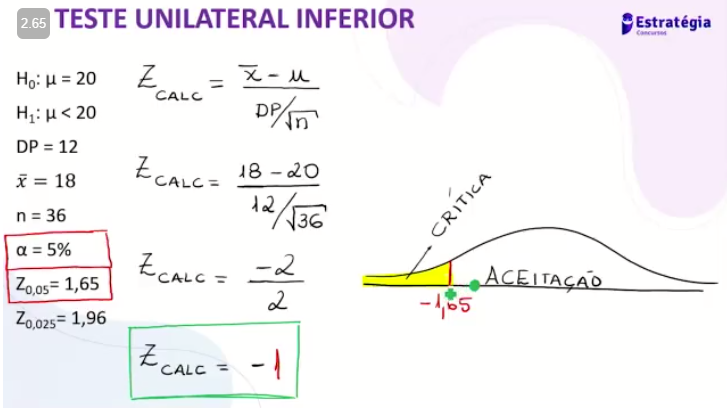 2.65
TESTE UNILATERAL INFERIOR
Estratégia
Concursos
H₀: μ = 20
H₁: μ < 20
DP = 12
x̄ = 18
n = 36
α = 5%
Z₀,₀₅= 1,65
Z₀,₀₂₅= 1,96
Z CALC = x̄ - μ / DP/√n
Z CALC = 18 - 20 / 12/√36
Z CALC = -2 / 2
Z CALC = -1
CRÍTICA
ACEITAÇÃO
-1,65